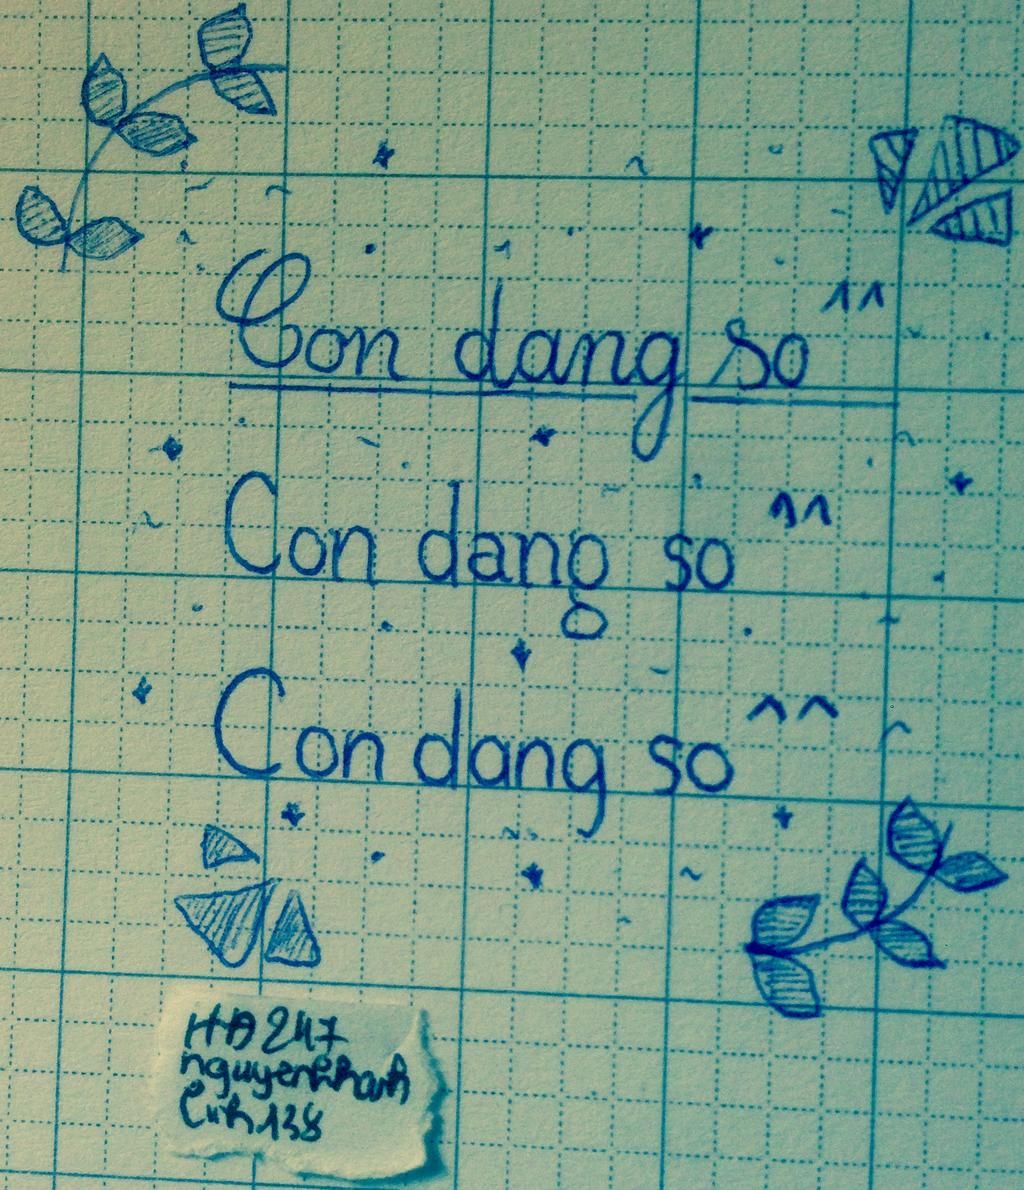 Con dang so ^^
Con dang so ^^
Con dang so ^^
HD247
nguyenkhanh
linh138